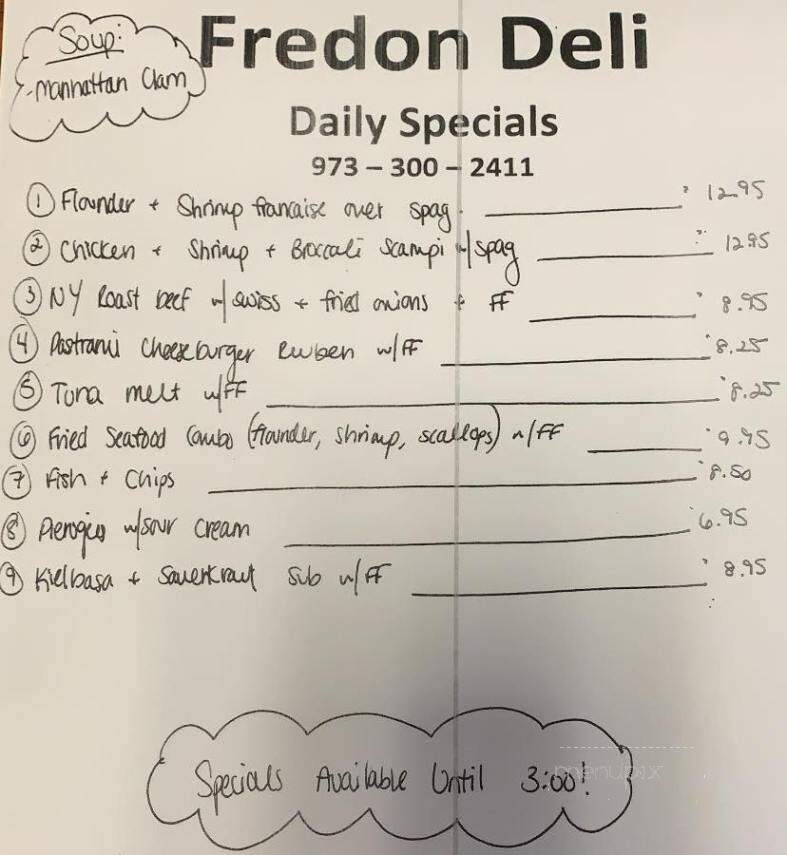 Soup:
- Manhattan Clam
Fredon Deli
Daily Specials
973 – 300 – 2411
① Flounder + Shrimp francaise over spag. 12.95
② Chicken + Shrimp + Broccoli Scampi w/ spag 12.95
③ NY Roast beef w/ swiss + fried onions + FF 8.95
④ Pastrami Cheeseburger Reuben w/ FF 8.25
⑤ Tuna melt w/ FF 8.25
⑥ Fried Seafood Combo (flounder, shrimp, scallops) w/ FF 9.95
⑦ Fish + Chips 8.50
⑧ Pierogies w/ sour cream 6.95
⑨ Kielbasa + Sauerkraut Sub w/ FF 8.95
Specials Available Until 3:00!
menupix